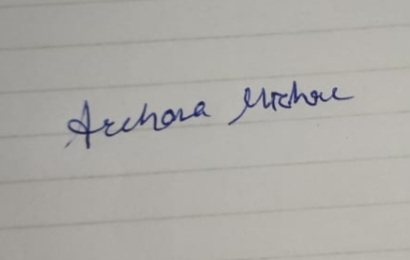 Archana Mishra